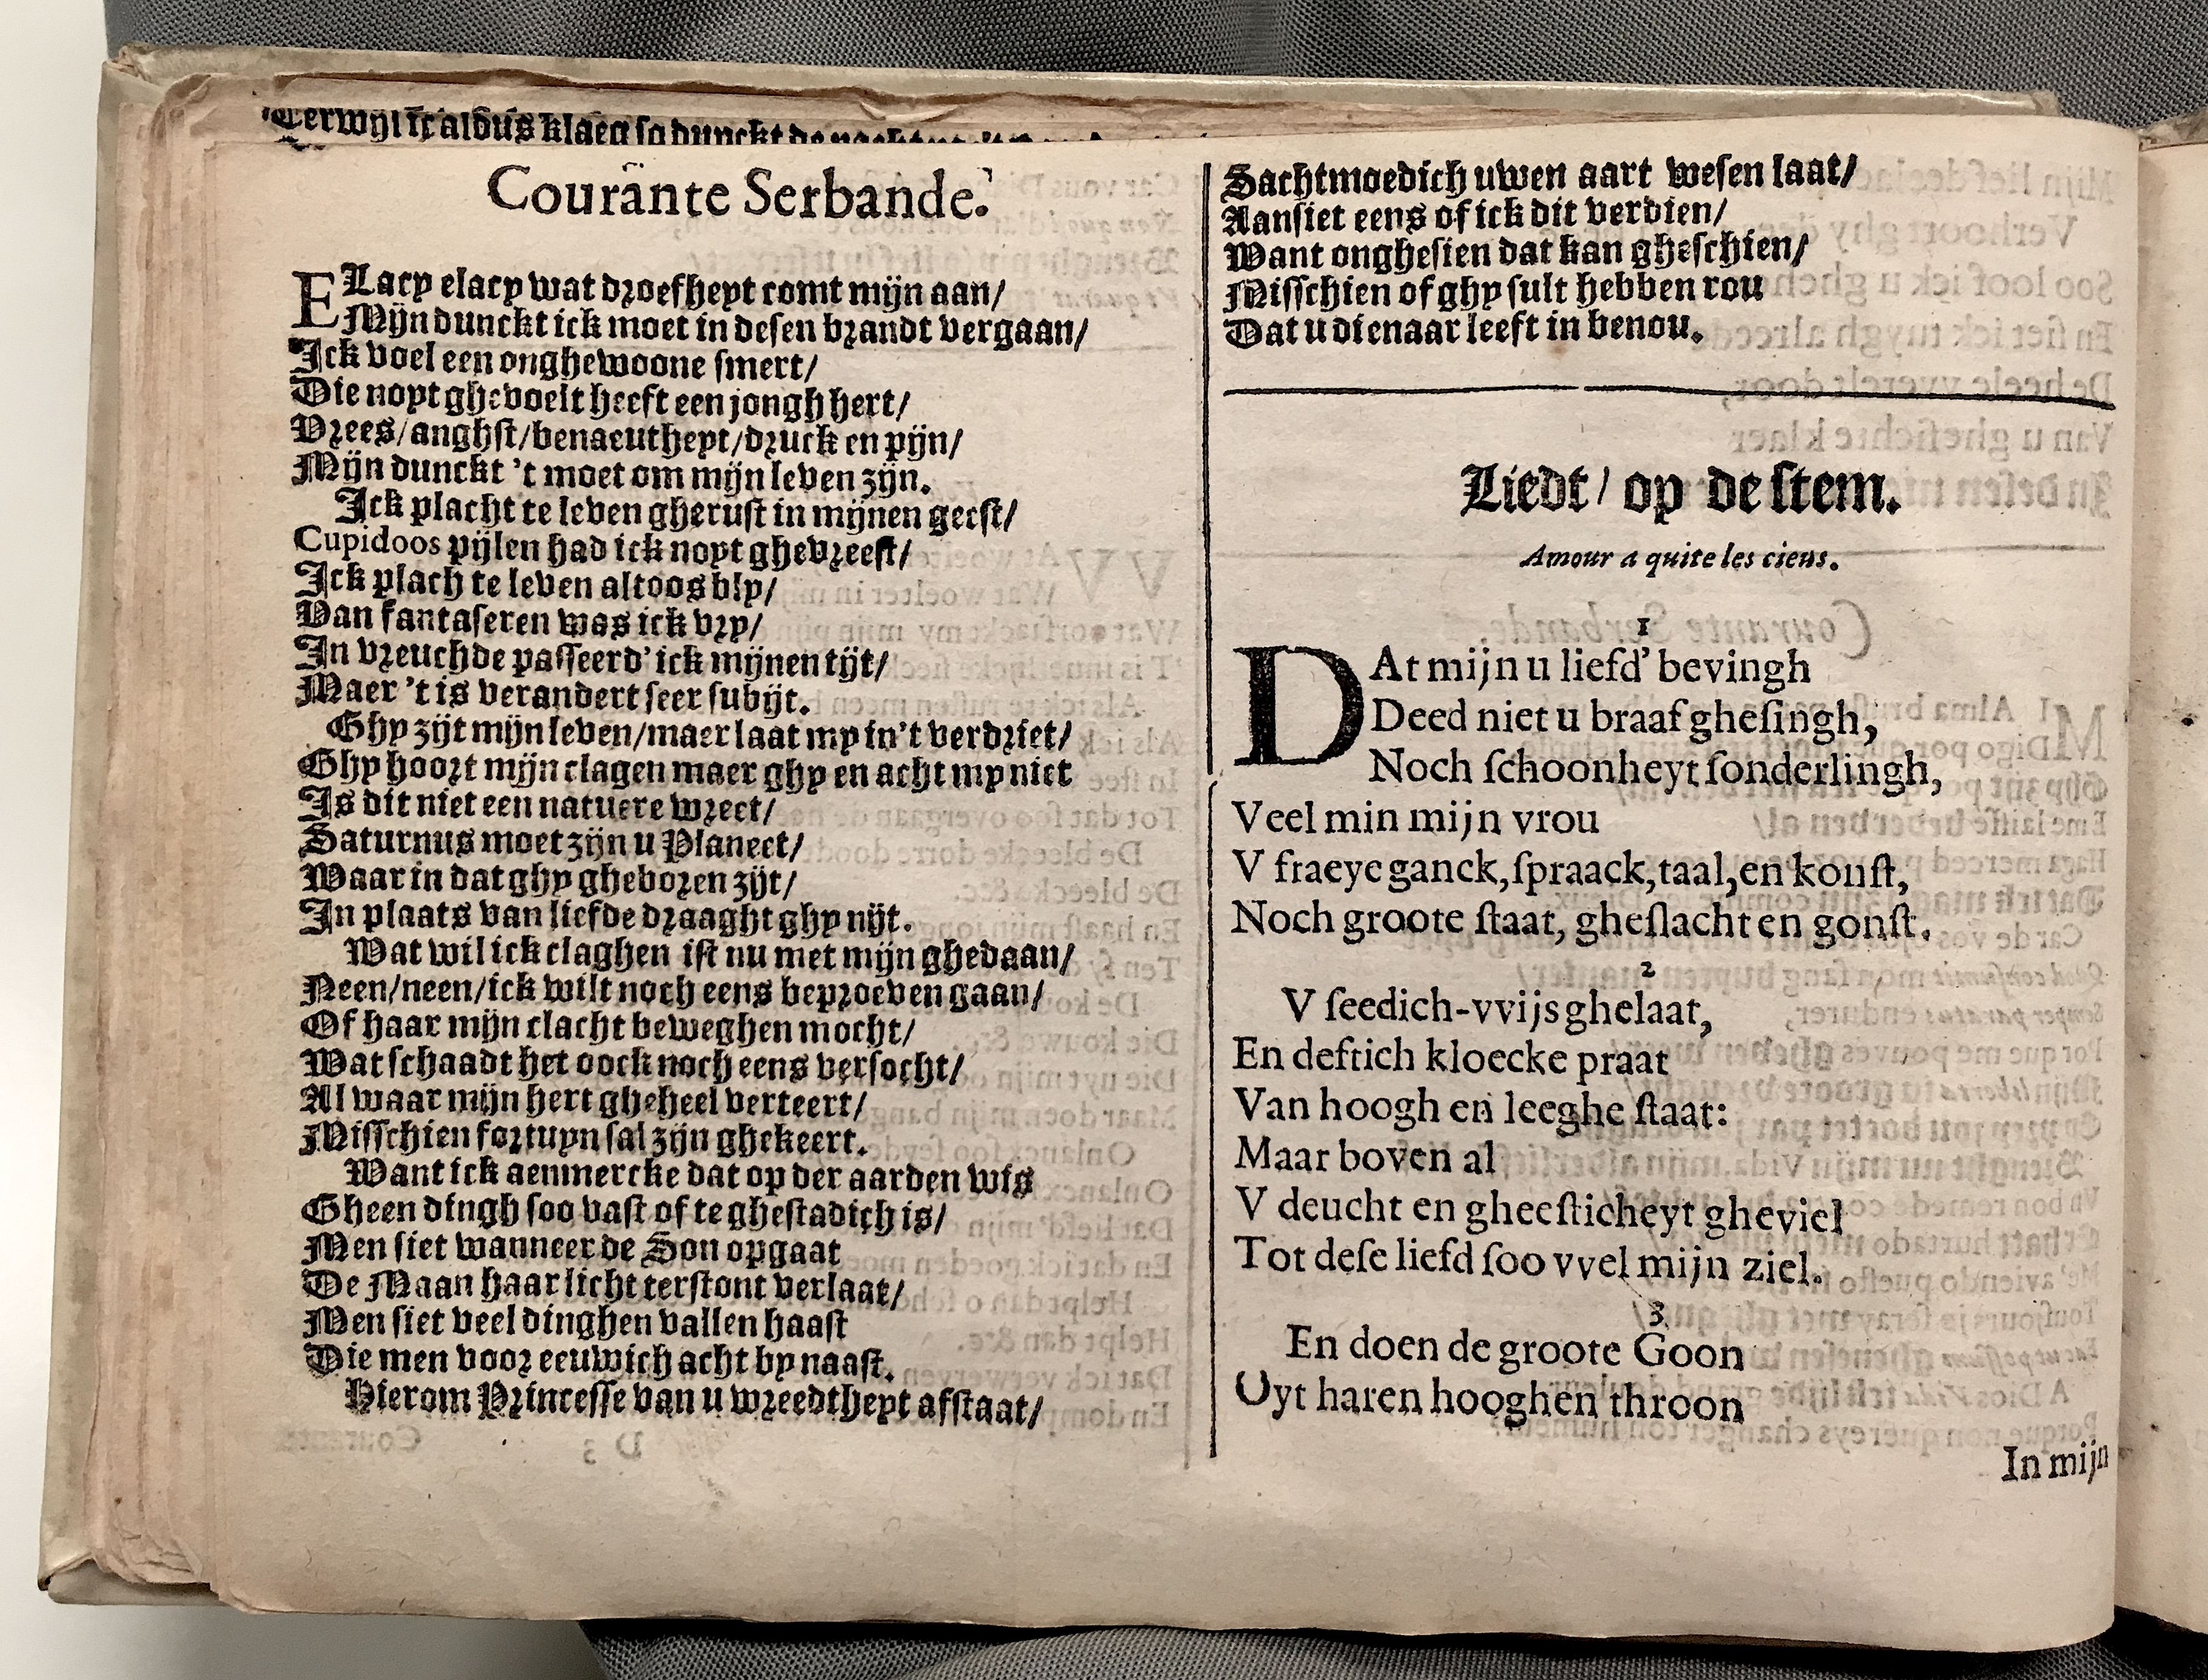 Terwijl ick aldus klaeg so dunckt de nacht
Courante Serbande.
ELacy elacy wat droefheyt comt mijn aan/
Mijn dunckt ick moet in desen brandt vergaan/
Ick voel een onghewoone smert/
Die noyt ghevoelt heeft een jongh hert/
Vrees/anghst/benaeutheyt/druck en pijn/
Mijn dunckt 't moet om mijn leven zijn.
Ick placht te leven gherust in mijnen geest/
Cupidoos pijlen had ick noyt ghevreest/
Ick plach te leven altoos bly/
Van fantaseren was ick vry/
In vreuchde passeerd' ick mijnen tijt/
Maer 't is verandert seer subijt.
Ghy zijt mijn leven/maer laat my in't verdriet/
Ghy hoort mijn clagen maer ghy en acht my niet
Is dit niet een natuere wreet/
Saturnus moet zijn u Planeet/
Waar in dat ghy gheboren zijt/
In plaats van liefde draaght ghy nijt.
Wat wil ick claghen ist nu met mijn ghedaan/
Neen/neen/ick wilt noch eens beproeven gaan/
Of haar mijn clacht beweghen mocht/
Wat schaadt het oock noch eens versocht/
Al waar mijn hert gheheel verteert/
Misschien fortuyn sal zijn ghekeert.
Want ick aenmercke dat op der aarden wis
Gheen dingh soo vast of te ghestadich is/
Men siet wanneer de Son opgaat
De Maan haar licht terstont verlaat/
Men siet veel dinghen vallen haast
Die men voor eeuwich acht by naast.
Hierom Princesse van u wreedtheyt afstaat/
Sachtmoedich uwen aart wesen laat/
Aansiet eens of ick dit verdien/
Want onghesien dat kan gheschien/
Misschien of ghy sult hebben rou
Dat u dienaar leeft in benou.
Liedt/ op de stem.
Amour a quite les ciens.
1
DAt mijn u liefd' bevingh
Deed niet u braaf ghesingh,
Noch schoonheyt sonderlingh,
Veel min mijn vrou
V fraeye ganck, spraack, taal, en konst,
Noch groote staat, gheslacht en gonst.
2
V seedich-vvijs ghelaat,
En deftich kloecke praat
Van hoogh en leeghe staat:
Maar boven al
V deucht en gheesticheyt gheviel
Tot dese liefd soo vvel mijn ziel.
3
En doen de groote Goon
Uyt haren hooghen throon
In mijn